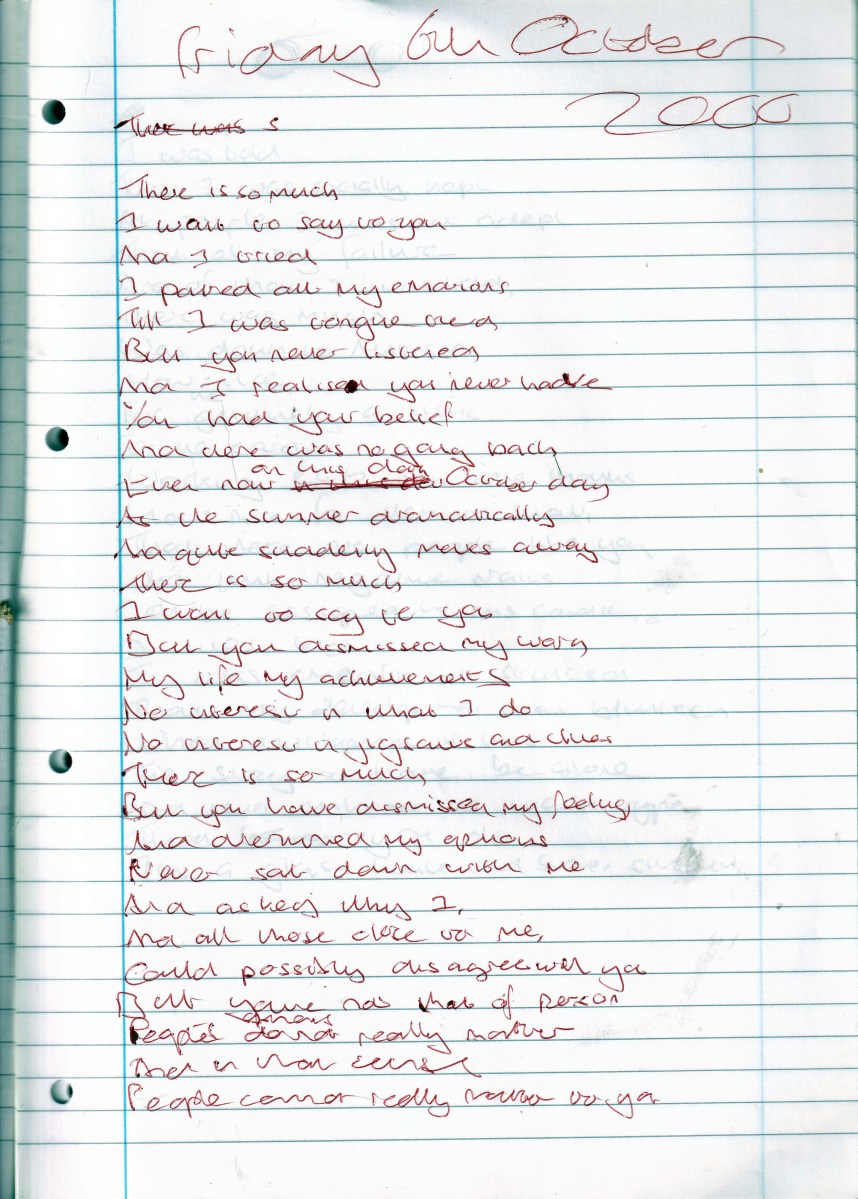 Friday 6th October
2000
There was s
There is so much
I want to say to you
And I tried
I poured all my emotions
Till I was tongue tied
But you never listened
And I realised you never have
You had your belief
And there was no going back
Even now on this October day
As the summer dramatically
And quite suddenly moves away
There is so much
I want to say to you
But you dismissed my work
My life my achievements
No interest in what I do
No interest in jigsaws and clues
There is so much
But you have dismissed my feelings
And my opinions
Never sat down with me
And asked why I,
And all those close to me,
Could possibly disagree with you
But your not that of person
People's opinions do not really matter
Then in that sense
People cannot really matter to you